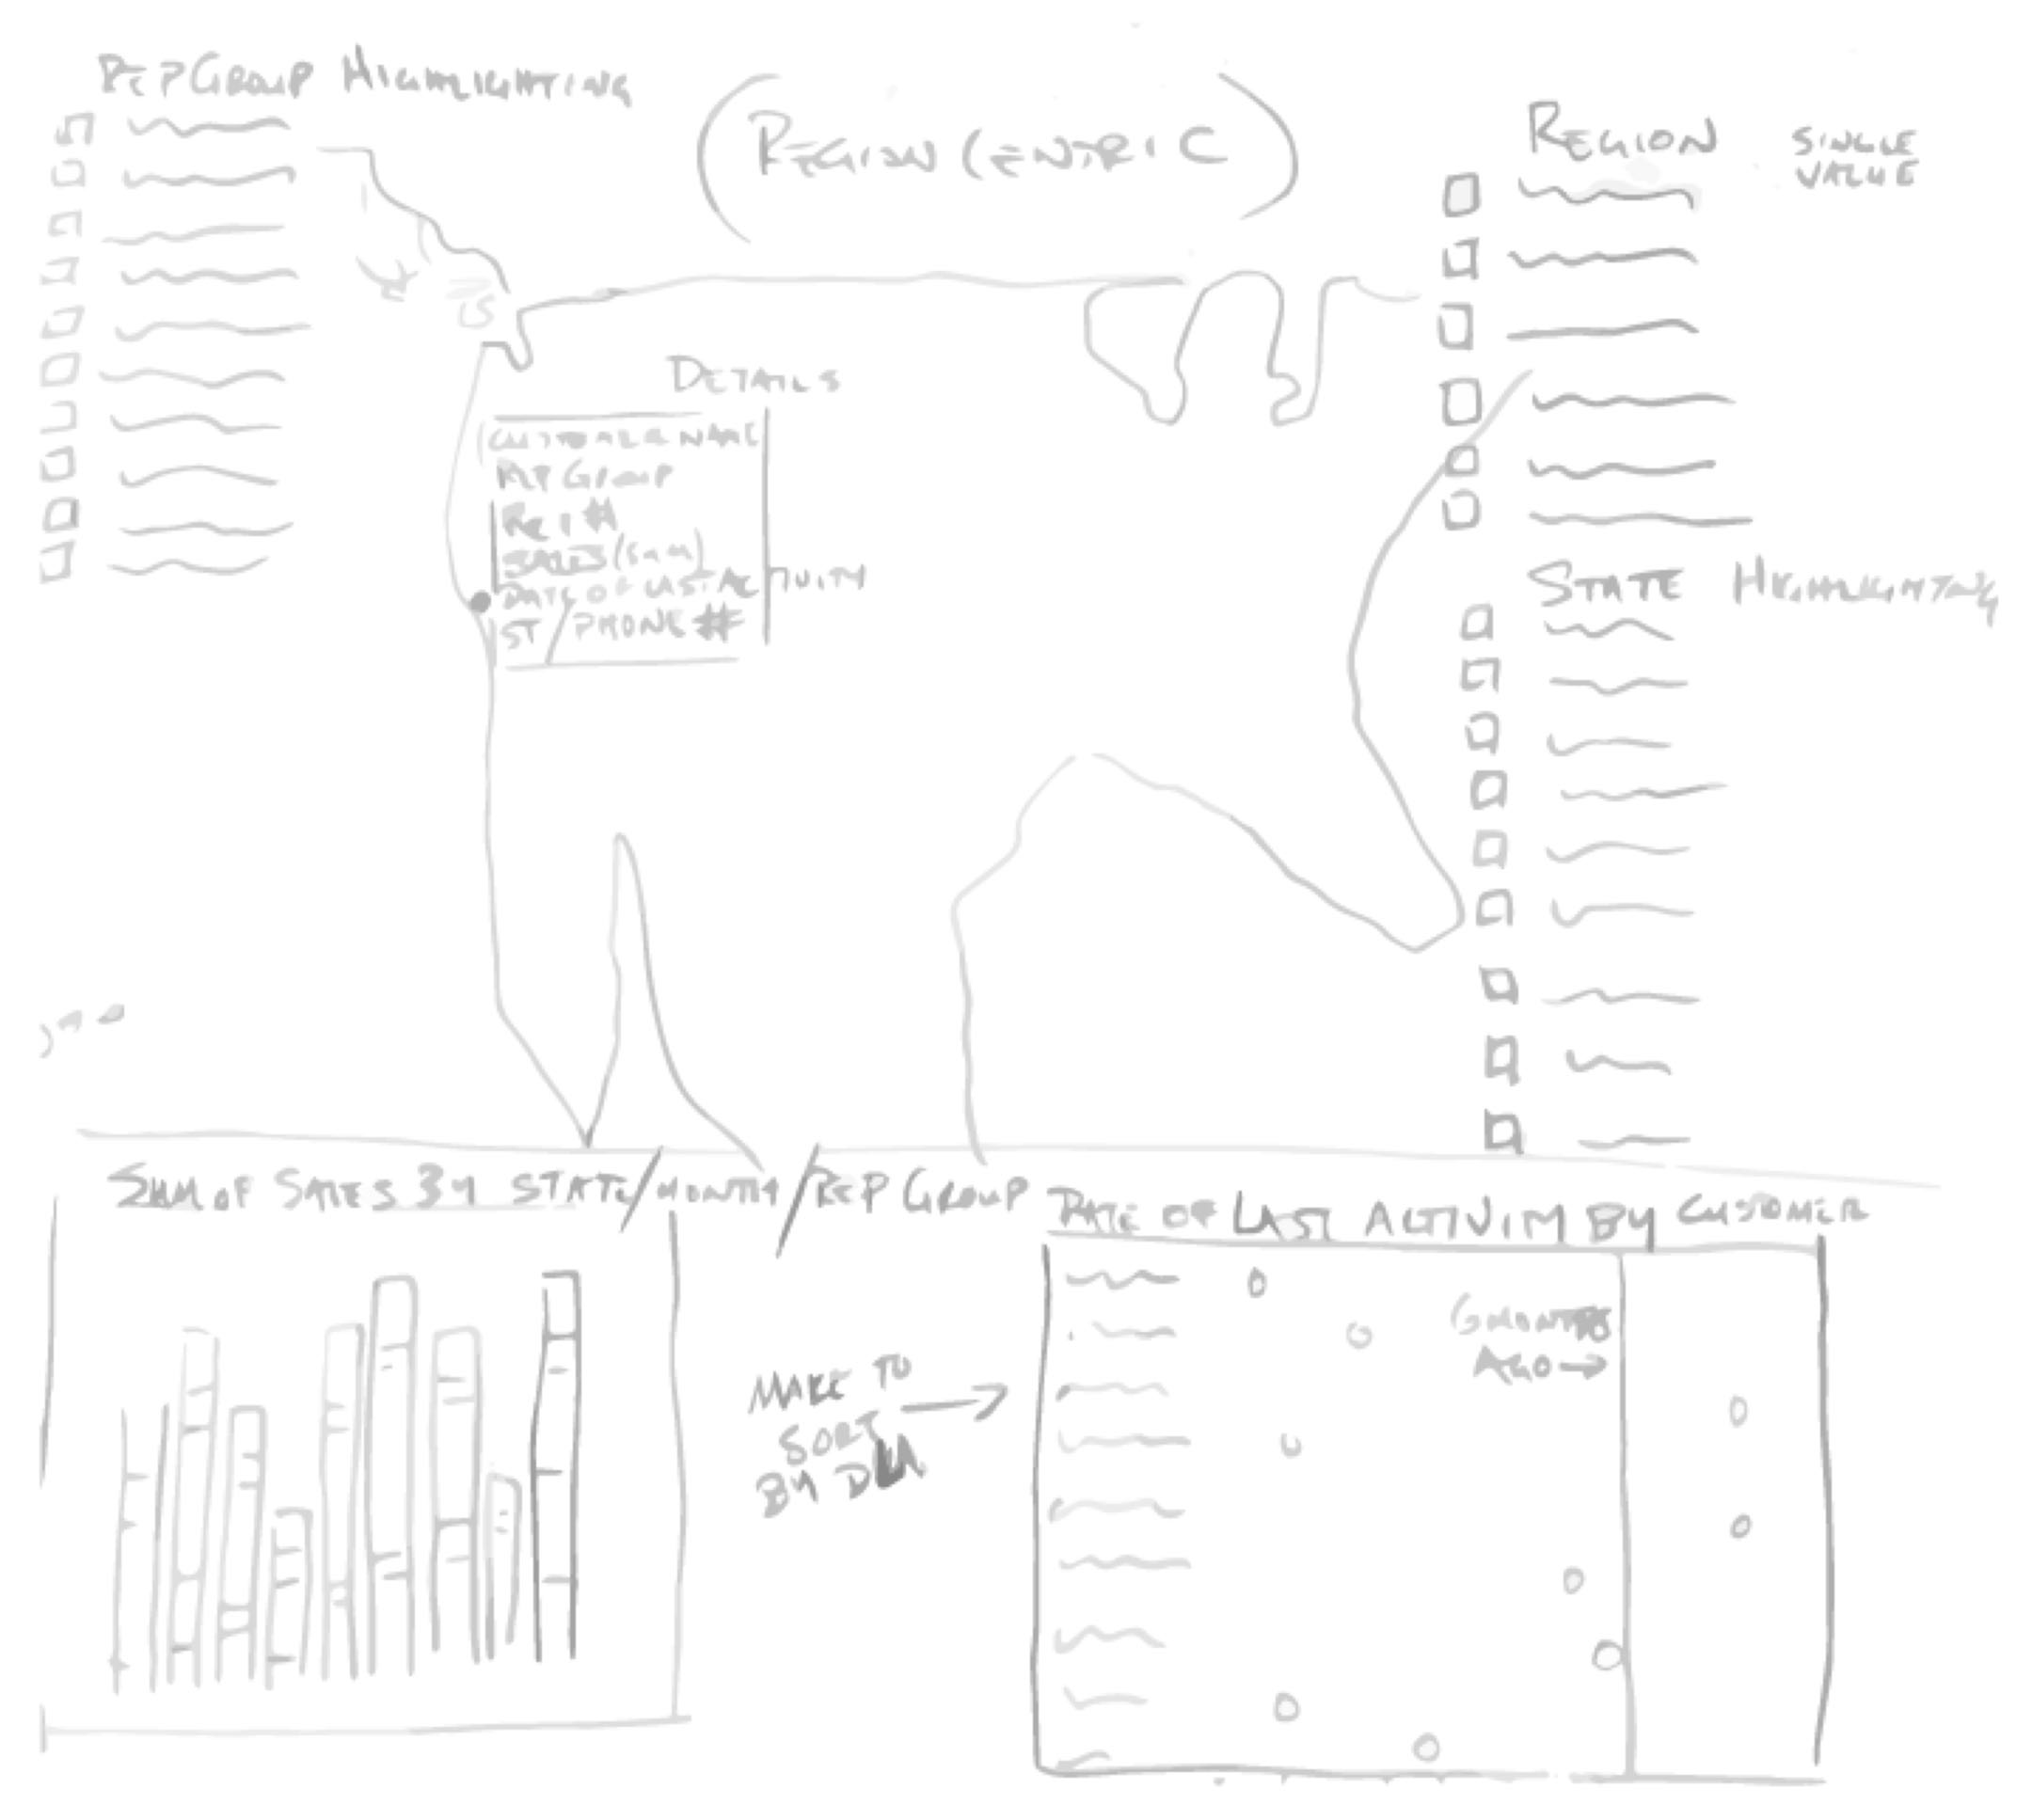 REP GROUP HIGHLIGHTING
(REGION CENTRIC)
REGION SINGLE
VALUE
DETAILS
CUSTOMER NAME
REP GROUP
REP #
SALES (SUM)
DATE OF LAST ACTIVITY
ST / PHONE #
STATE HIGHLIGHTING
SUM OF SALES BY STATE/MONTH/REP GROUP
DATE OF LAST ACTIVITY BY CUSTOMER
6 MONTHS
AGO →
MAKE TO
SORT
BY DLA